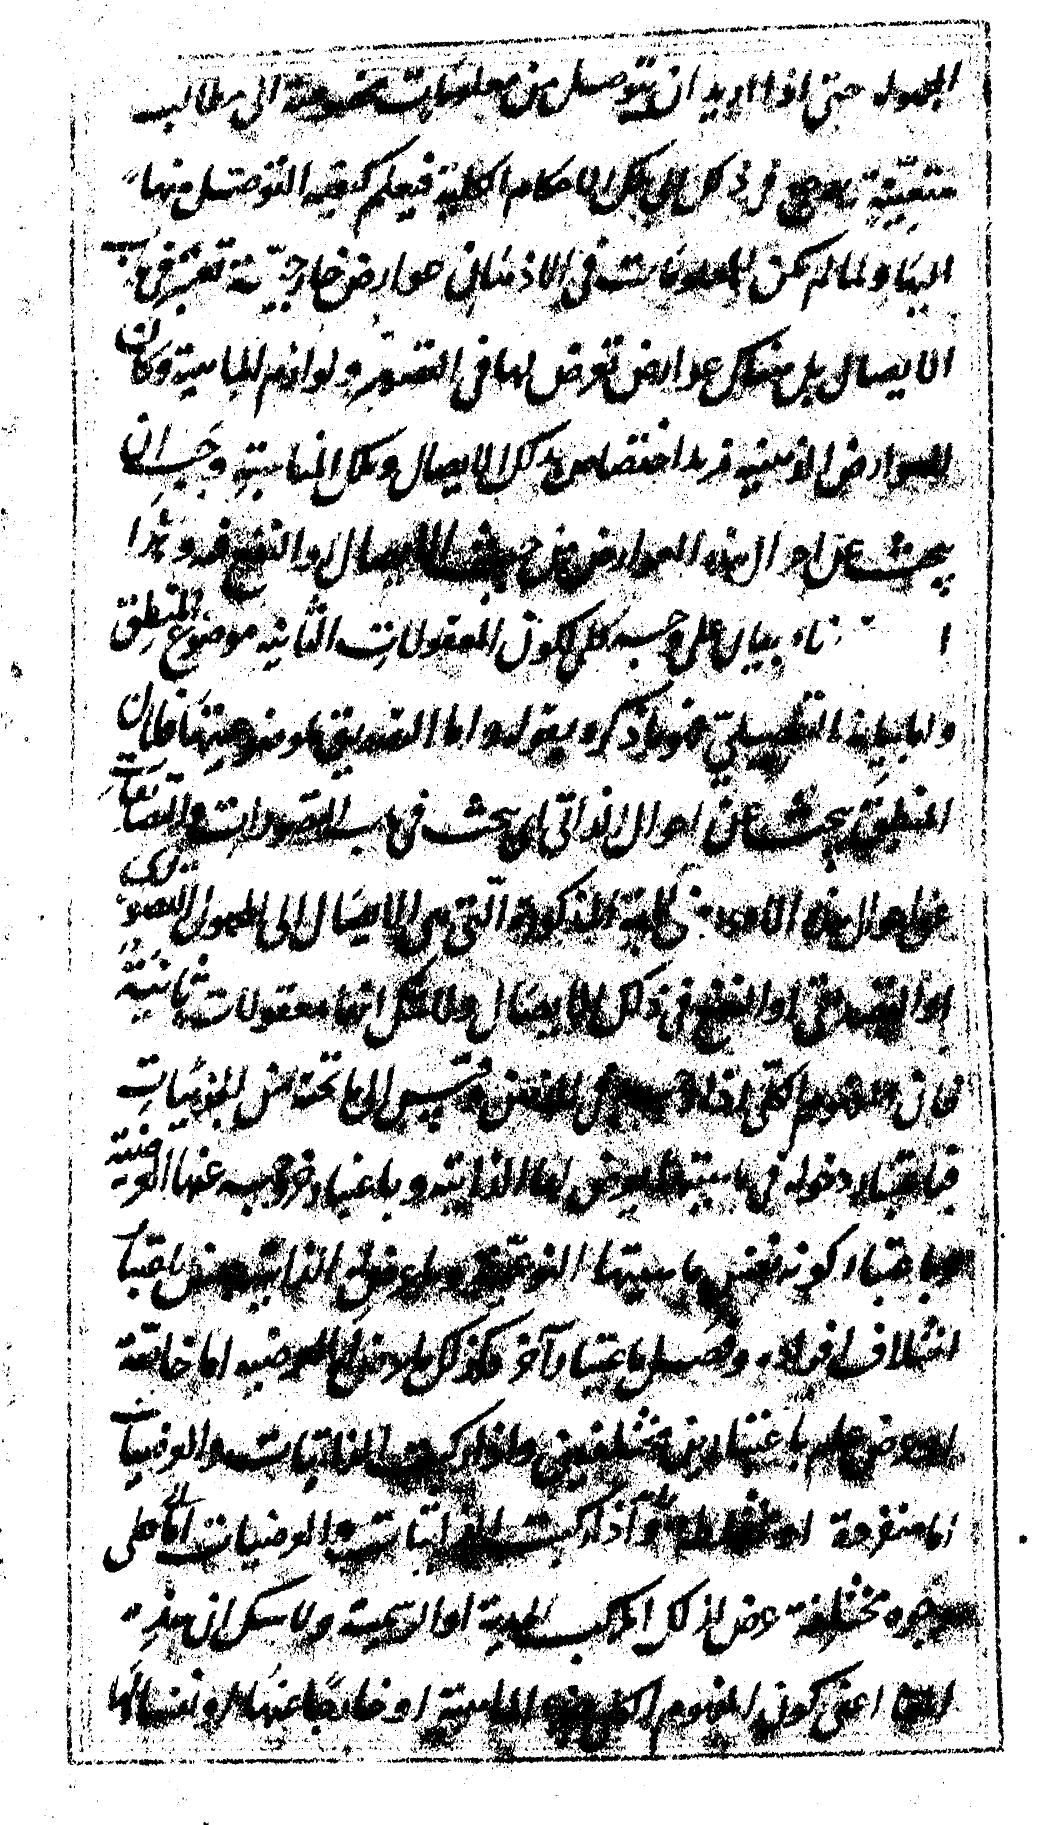 المجهول حتى اذا اريد ان يتوصل من معلومات مخصوصة الى مطالب
متعينة يرجع في ذلك الى تلك الاحكام الكلية فيعلم كيفية التوصل منها
اليها ولما لم يكن للمعلومات في الاذهان عوارض خارجية تعتبر في
الايصال بل هناك عوارض تعرض لها في التصور ولوازم الماهية وكان
للعوارض الذهنية مزيد اختصاص بذلك الايصال وتلك المناسبة وجب ان
يبحث عن احوال هذه العوارض من حيث الايصال او النفع فيه وهذا
بيان على وجه كلي لكون المعقولات الثانية موضوع المنطق
واما بيانه التفصيلي فهو ما ذكره بقوله واما التصديق بموضوعيتها فلان
المنطقي يبحث عن احوال الذاتي اي يبحث في باب التصورات والتصديقات
عن احوال هذه الامور الكلية المذكورة التي هي الايصال الى المجهول التصوري
او التصديقي او النفع في ذلك الايصال ولا شك انها معقولات ثانية
فان المفهوم الكلي اذا وجد في الذهن وقيس الى ما تحته من الجزئيات
فباعتبار دخوله في ماهيتها يعرض لها الذاتية وباعتبار خروجه عنها العرضية
وباعتبار كونه نفس ماهيتها النوعية وما عرض له الذاتية جنس باعتبار
اختلاف افراده وفصل باعتبار آخر وكذلك ما عرض له العرضية اما خاصة
او عرض عام باعتبارين مختلفين واذا ركبت الذاتيات والعرضيات
اما منفردة او مختلطة واذا ركبت الذاتيات والعرضيات اما على
وجوه مختلفة عرض لذلك المركب الحدية او الرسمية ولا شك ان هذه
المعاني اعني كون المفهوم الكلي جزء الماهية او خارجا عنها او نفسا لها